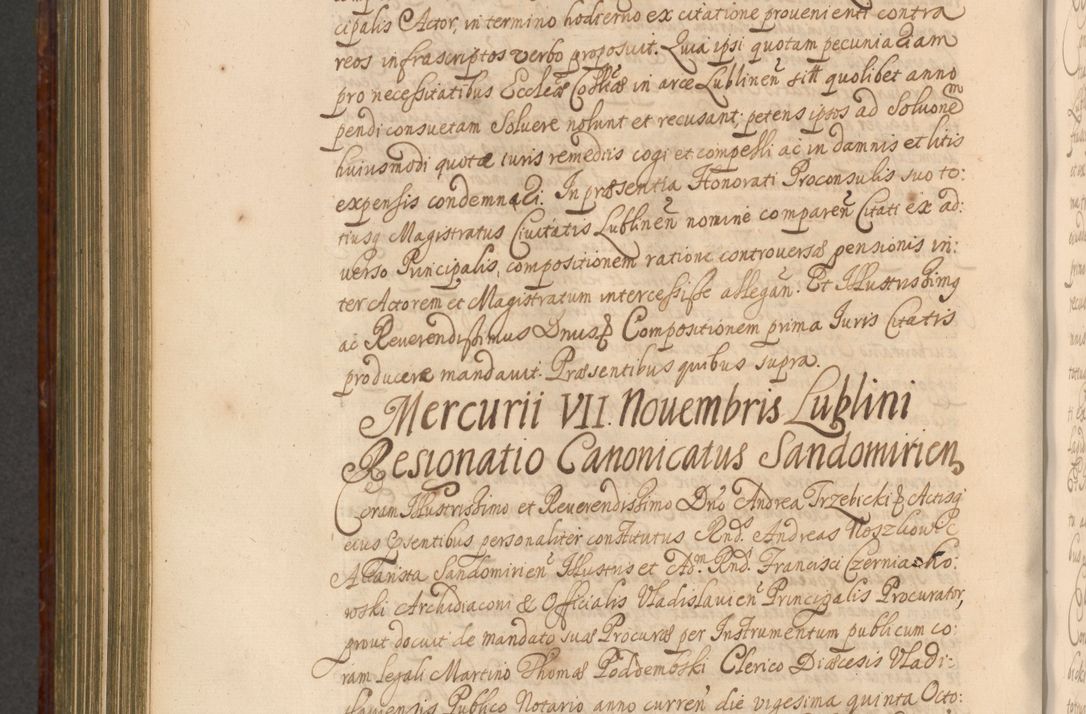 cipalis Actor, in termino hodierno ex citatione provenienti contra
reos infrascriptos verbo proposuit. Quia ipsi quotam pecuniariam
pro necessitatibus Eccleæ Collæ in arce Lublineñ sitæ quolibet anno
pendi consuetam Soluere nolunt et recusant, petens ipsos ad Soluonem
huiusmodi quotæ iuris remediis cogi et compelli ac in damnis et litis
expensis condemnari. In præsentia Honorati Proconsulis suo to:
tiusq Magistratus Ciuitatis Lublineñ nomine compareñ Citati ex ad:
uerso Principalis, compositionem ratione controversæ pensionis in:
ter Actorem et Magistratum intercessisse allegañ. Et Illustrissimq
ac Reuerendissimus Dnus Compositionem prima Iuris Citatis
producere mandauit. Præsentibus quibus supra.
Mercurii VII. Nouembris Lublini
Resignatio Canonicatus Sandomirien
Coram Illustrissimo et Reuerendissimo Dno Andrea Trzebicki Actisq
eius Psentibus personaliter constitutus Rnds Andreas Noszkow
Altarista Sandomirieñ Illustris et Adm Rnds Francisci Czerniako:
wski Archidiaconi & Officialis Vladislauieñ Principalis Procurator,
prout docuit de mandato suæ Procuræ per Instrumentum publicum co:
ram legali Martino Thoma Poddembski Clerico Diæcesis Vladi:
slauiensis Publico Notario anno curreñ die vigesima quinta Octo: